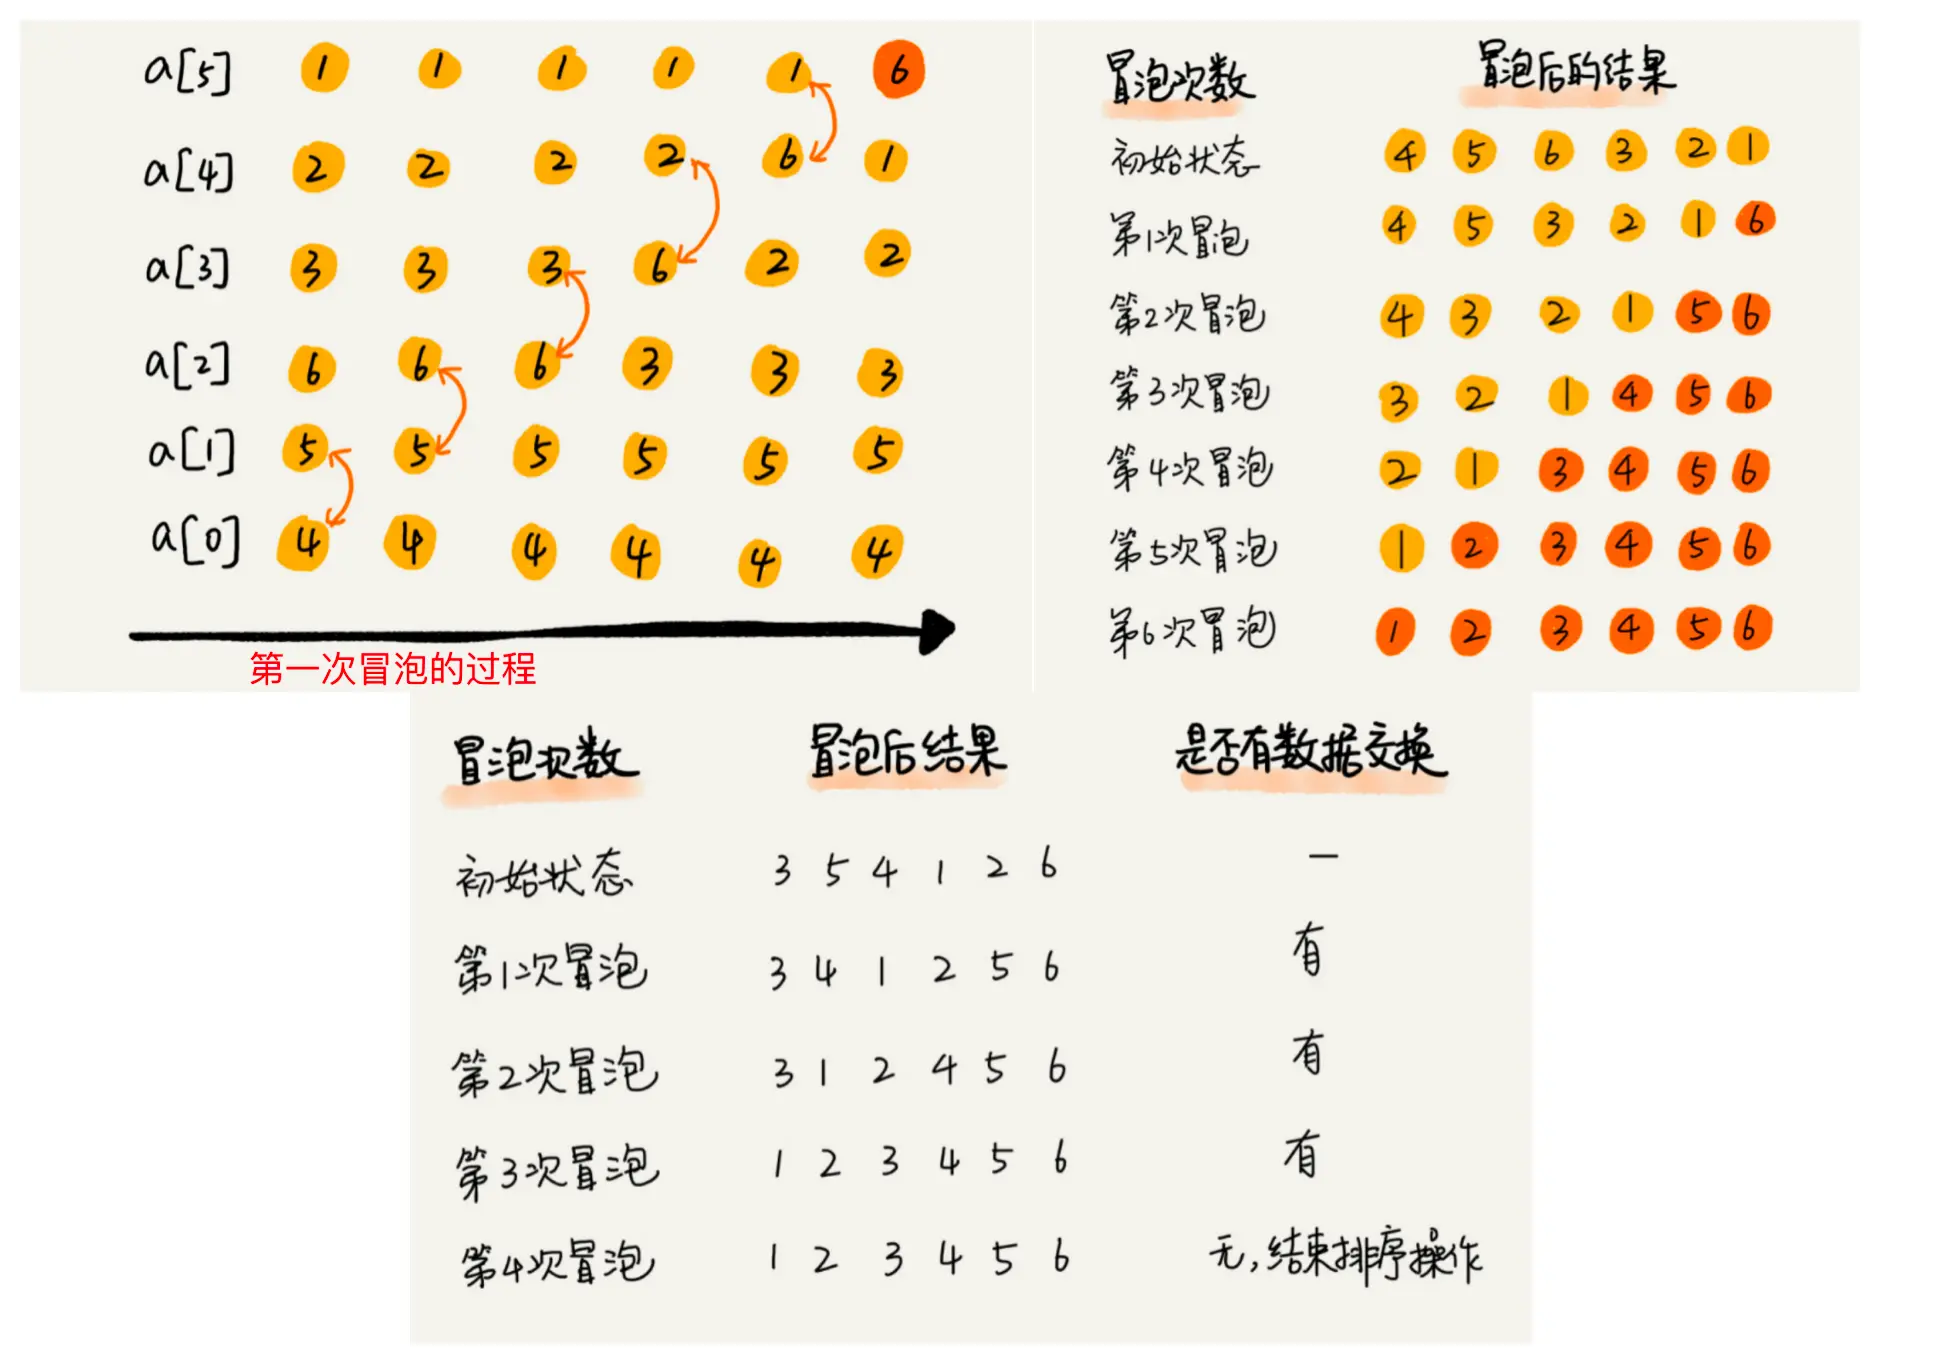 a[5] 1 1 1 1 1 6
a[4] 2 2 2 2 6 1
a[3] 3 3 3 6 2 2
a[2] 6 6 6 3 3 3
a[1] 5 5 5 5 5 5
a[0] 4 4 4 4 4 4
第一次冒泡的过程
冒泡次数 冒泡后的结果
初始状态 4 5 6 3 2 1
第1次冒泡 4 5 3 2 1 6
第2次冒泡 4 3 2 1 5 6
第3次冒泡 3 2 1 4 5 6
第4次冒泡 2 1 3 4 5 6
第5次冒泡 1 2 3 4 5 6
第6次冒泡 1 2 3 4 5 6
冒泡次数 冒泡后结果 是否有数据交换
初始状态 3 5 4 1 2 6 —
第1次冒泡 3 4 1 2 5 6 有
第2次冒泡 3 1 2 4 5 6 有
第3次冒泡 1 2 3 4 5 6 有
第4次冒泡 1 2 3 4 5 6 无,结束排序操作